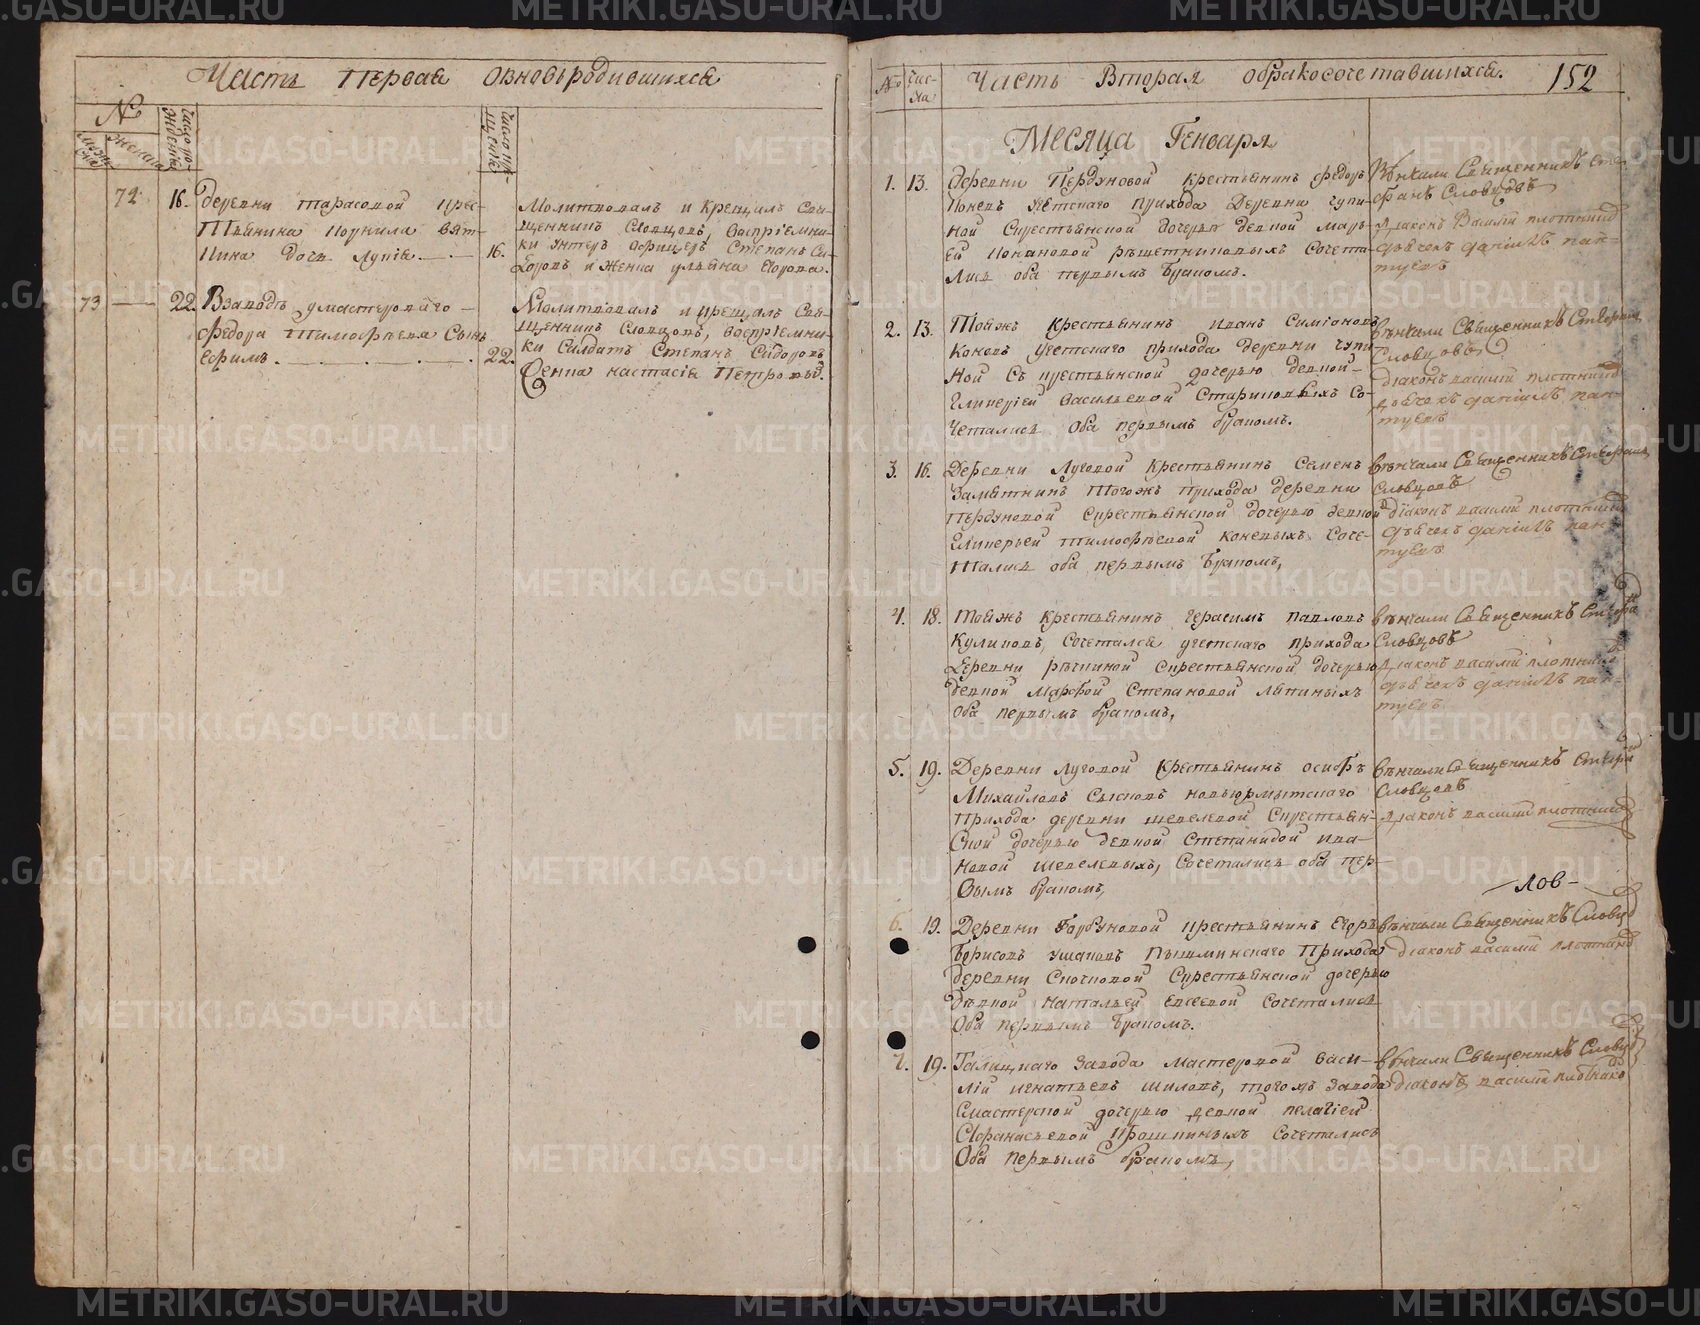 Часть Первая оновьродившихся
№
мужеска
женска
число рождения
число крещения
72. 16. деревни тарасовой крес-
тьянина корнила вят-
кина дочь Лукія 16.
Молитвовалъ и Крещилъ Свя-
щенникъ Словцовъ, воспріемни-
ки унтеръ офицеръ Степанъ Си-
доровъ и женка ульяна Егорова.
73 22. Взаводѣ умастероваго
Федора Тимофѣева Сынъ
Ефимъ 22.
Молитвовалъ и крещалъ Свя-
щенникъ Словцовъ, воспріемни-
ки Салдатъ Степанъ Сидоровъ
женка настасія Петровы.
№ Чис-
ла
Часть Вторая обракосочетавшихся. 152
Месяца Генваря
1. 13. деревни Пердуновой крестьянинъ Федоръ
Коневъ уетскаго прихода Деревни чупи-
ной Скрестьянской дочерью девкой марь-
ей ивановой рѣшетниковыхъ Сочета-
лись оба первымъ бракомъ.
Вѣнчали Священникъ Сте-
фанъ Словцовъ
диаконъ Василий плотников
дьячекъ данiилъ пан-
туевъ
2. 13. Тояжъ крестьянинъ иванъ Симіоновъ
Коневъ уетскаго прихода деревни чупи-
ной съ крестьянской дочерью девкой
Гликеріей васильевой Стариковыхъ Со-
четались оба первымъ бракомъ.
вѣнчали Священникъ Стефанъ
Словцовъ
діаконъ василий плотников
дьячекъ данiилъ пан-
туевъ
3. 16. Деревни Луговой крестьянинъ Семенъ
Замятнинъ Тогожъ прихода деревни
Пердуновой Скрестьянской дочерью девкой
Гликерьей тимофѣевой коневыхъ Соче-
тались оба первымъ бракомъ,
вѣнчали Священникъ Стефанъ
Словцовъ
діаконъ василий плотников
дьячекъ данiилъ пан-
туевъ
4. 18. Тояжъ крестьянинъ герасимъ павловъ
Куликовъ, Сочетался уетскаго прихода
Деревни речкиной Скрестьянской дочерью
девкой Марфой Степановой Лапиныхъ
оба первымъ бракомъ,
вѣнчали Священникъ Стефанъ
Словцовъ
диаконъ василий плотников
дьячекъ данiилъ пан-
туевъ
5. 19. Деревни Луговой крестьянинъ осифъ
Михайловъ Сысковъ новьюрмытскаго
Прихода деревни шевелевой Скрестьян-
ской дочерью девкой Степанидой ива-
новой шевелевыхъ, Сочетались оба пер-
вымъ бракомъ,
вѣнчали Священникъ Стефанъ
Словцовъ
диаконъ василий плотников
лов-
6. 19. Деревни Горбуновой крестьянинъ Егоръ
Борисовъ ушаковъ Пышминскаго Прихода
деревни Скрестьянской дочерью
дѣвкой натальей евсеевой сочетались
оба первымъ бракомъ.
вѣнчали Священникъ Словцов
діаконъ василий плотников
7. 19. Талицкаго Завода мастеровой васи-
лій игнатьевъ шиловъ, тогожъ завода
Смастерской дочерью девкой пелагіей
Афанасьевой крашниныхъ сочетались
оба первымъ бракомъ,
вѣнчали Священникъ Словцов
діаконъ василий плотников
METRIKI.GASO-URAL.RU